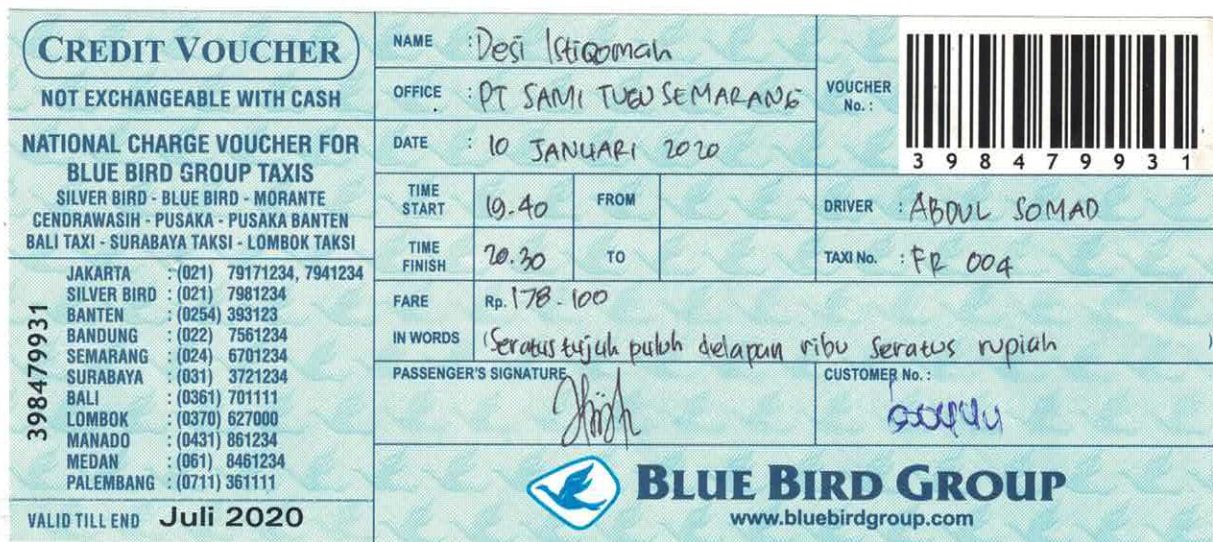 CREDIT VOUCHER
NOT EXCHANGEABLE WITH CASH
NATIONAL CHARGE VOUCHER FOR
BLUE BIRD GROUP TAXIS
SILVER BIRD - BLUE BIRD - MORANTE
CENDRAWASIH - PUSAKA - PUSAKA BANTEN
BALI TAXI - SURABAYA TAKSI - LOMBOK TAKSI
398479931
JAKARTA : (021) 79171234, 7941234
SILVER BIRD : (021) 7981234
BANTEN : (0254) 393123
BANDUNG : (022) 7561234
SEMARANG : (024) 6701234
SURABAYA : (031) 3721234
BALI : (0361) 701111
LOMBOK : (0370) 627000
MANADO : (0431) 861234
MEDAN : (061) 8461234
PALEMBANG : (0711) 361111
VALID TILL END Juli 2020
NAME : Desi Istiqomah
OFFICE : PT SAMI TUGU SEMARANG
DATE : 10 JANUARI 2020
VOUCHER No. :
398479931
TIME START 19.40 FROM
DRIVER : ABDUL SOMAD
TIME FINISH 20.30 TO
TAXI No. : FR 004
FARE Rp. 178.100
IN WORDS (Seratus tujuh puluh delapan ribu seratus rupiah)
PASSENGER'S SIGNATURE
CUSTOMER No. :
BLUE BIRD GROUP
www.bluebirdgroup.com